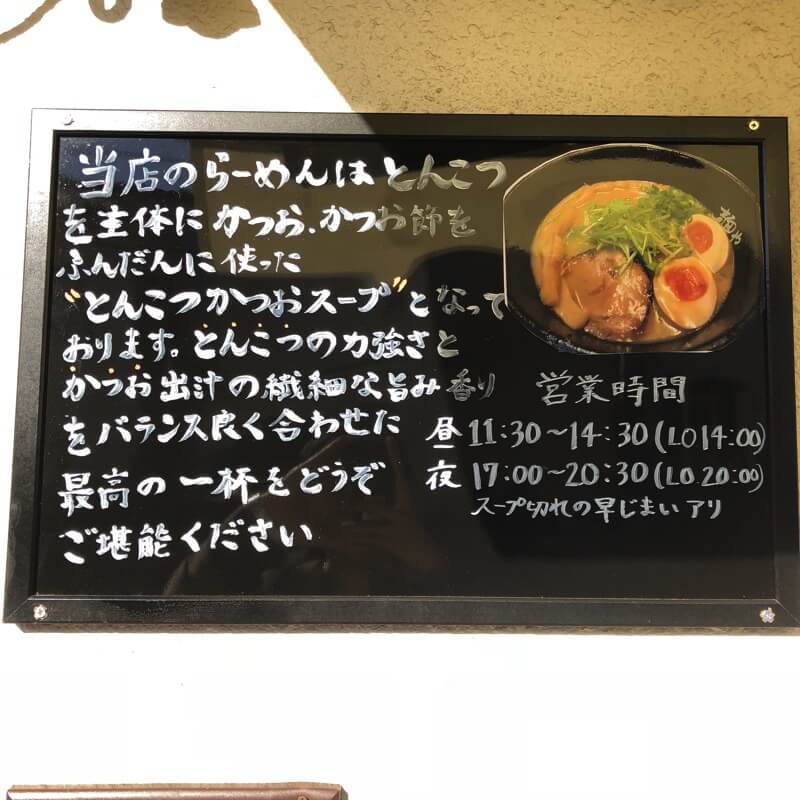 当店のらーめんはとんこつ
を主体にかつお、かつお節を
ふんだんに使った
"とんこつかつおスープ"となって
おります。とんこつの力強さと
かつお出汁の繊細な旨み香り
をバランス良く合わせた
最高の一杯をどうぞ
ご堪能ください
麺や
営業時間
昼 11:30〜14:30(LO14:00)
夜 17:00〜20:30(LO.20:00)
スープ切れの早じまいアリ